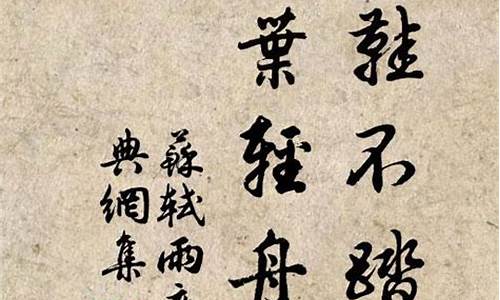 鞋不踏
葉輕舟
蘇軾雨
典網集